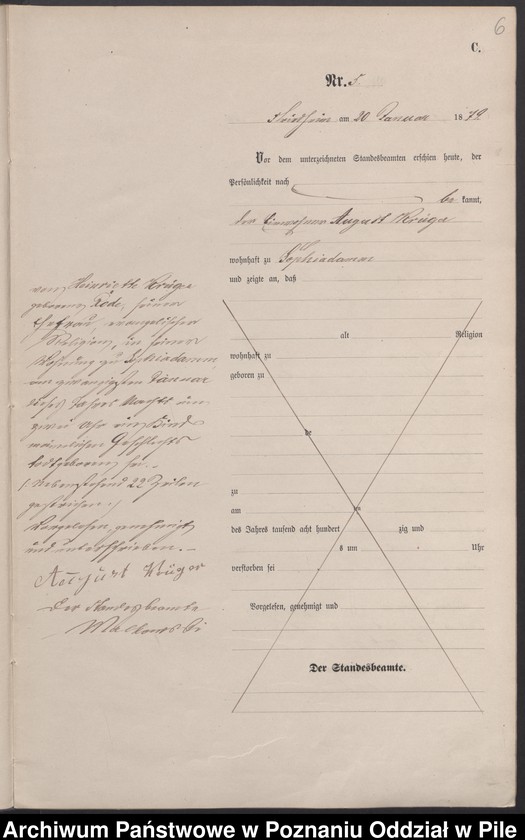 6
C.
Nr. 5.
am 20 Januar 1879
Vor dem unterzeichneten Standesbeamten erschien heute, der
Persönlichkeit nach
be kannt,
der Einwohner August Krüger
wohnhaft zu Sophiadamm
und zeigte an, daß
von Henriette Krüger
geborenen Rode, seiner
Ehefrau, evangelischer
Religion, in seiner
Wohnung zu Sophiadamm,
am zwanzigsten Januar
dieses Jahres Nachts um
zwei Uhr ein Kind
männlichen Geschlechts
todtgeboren sei.
Nebenstehend 22 Zeilen
gestrichen.
Vorgelesen, genehmigt
und unterschrieben.
August Krüger
Der Standesbeamte
alt Religion
wohnhaft zu
geboren zu
de
zu
am
des Jahres tausend acht hundert zig und
s um Uhr
verstorben sei
Vorgelesen, genehmigt und
Der Standesbeamte.
Archiwum Państwowe w Poznaniu Oddział w Pile